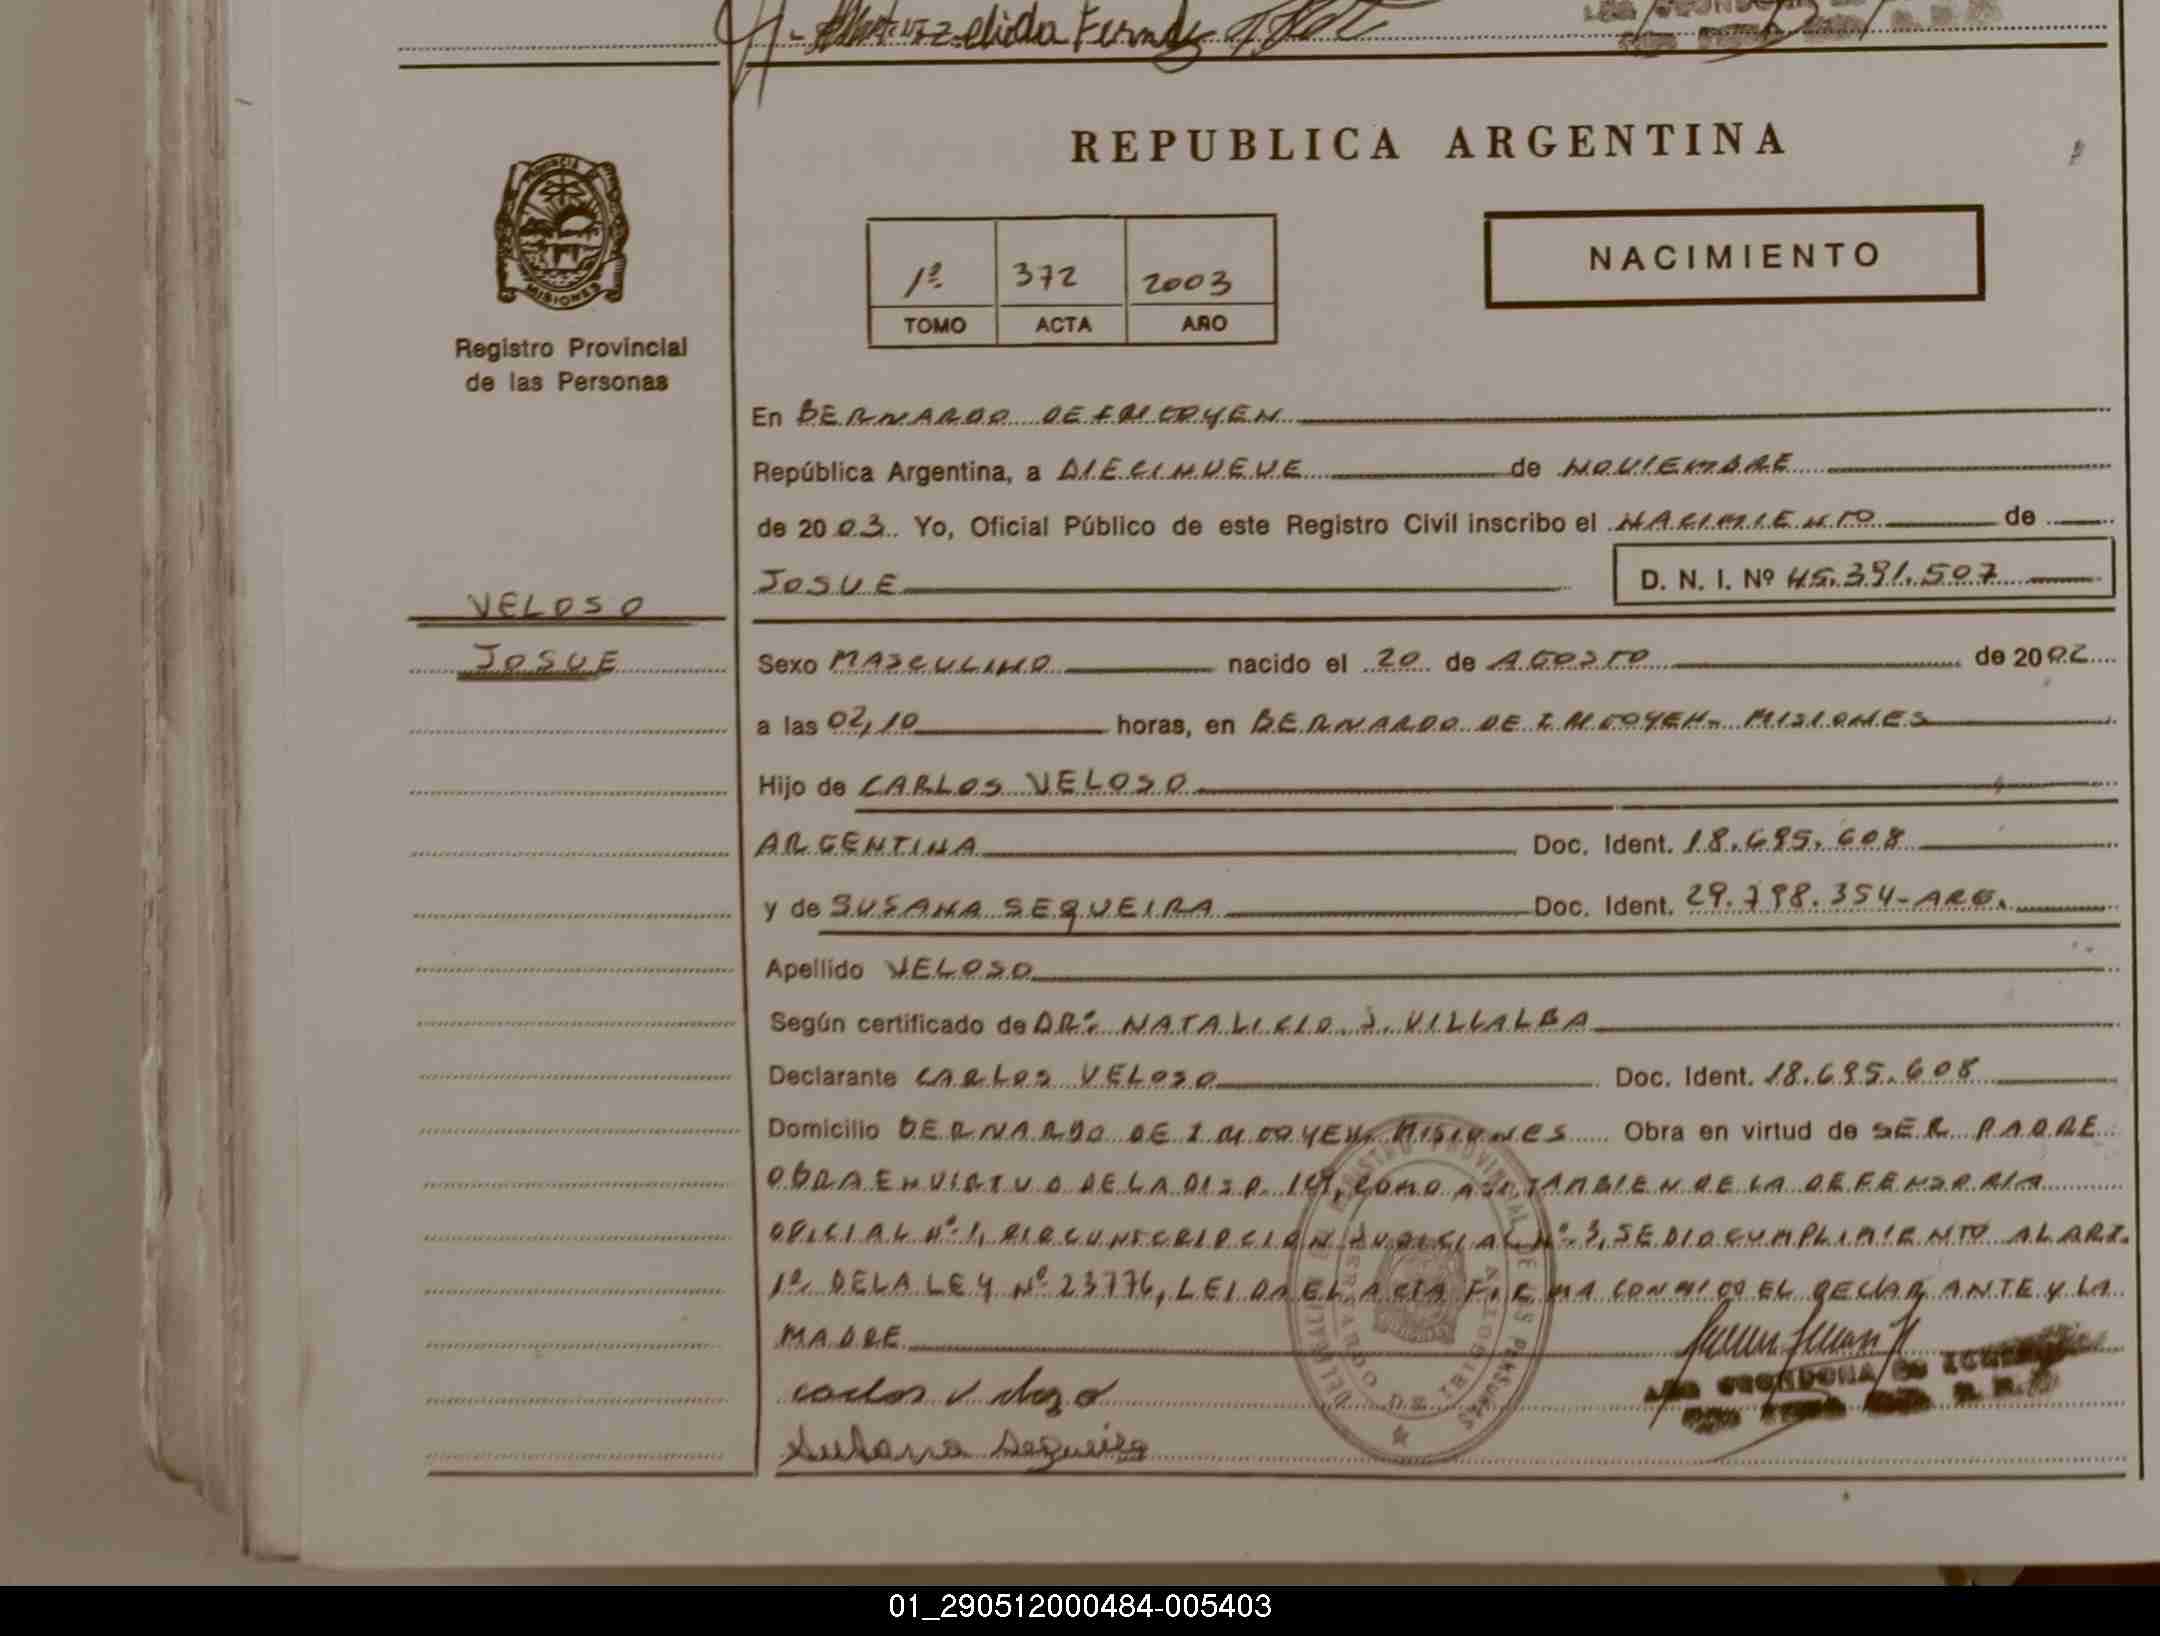 elida Fernandez
REPUBLICA ARGENTINA
PROVINCIA DE
MISIONES
Registro Provincial
de las Personas
1º 372 2003
TOMO ACTA AÑO
NACIMIENTO
En BERNARDO DE IRIGOYEN
República Argentina, a DIECINUEVE de NOVIEMBRE
de 2003. Yo, Oficial Público de este Registro Civil inscribo el NACIMIENTO de
JOSUE D. N. I. Nº 45.391.507
VELOSO
JOSUE
Sexo MASCULINO nacido el 20 de AGOSTO de 2002
a las 02,10 horas, en BERNARDO DE IRIGOYEN- MISIONES
Hijo de CARLOS VELOSO
ARGENTINA Doc. Ident. 18.695.608
y de SUSANA SEQUEIRA Doc. Ident. 29.798.354-ARG.
Apellido VELOSO
Según certificado de DRº. NATALICIO J. VILLALBA
Declarante CARLOS VELOSO Doc. Ident. 18.695.608
Domicilio BERNARDO DE IRIGOYEN MISIONES Obra en virtud de SER PADRE
OBRA EN VIRTUD DE LA DISP. COMO ASI TAMBIEN DE LA DEFENSORIA
OFICIAL Nº 1, CIRCUNSCRIPCION JUDICIAL Nº 3, SE DIO CUMPLIMIENTO AL ART.
1º DE LA LEY Nº 23776, LEIDA EL ACTA FIRMA CONMIGO EL DECLARANTE Y LA
MADRE
Carlos Veloso
Susana Sequeira
REGISTRO PROVINCIAL DE LAS PERSONAS
01_290512000484-005403